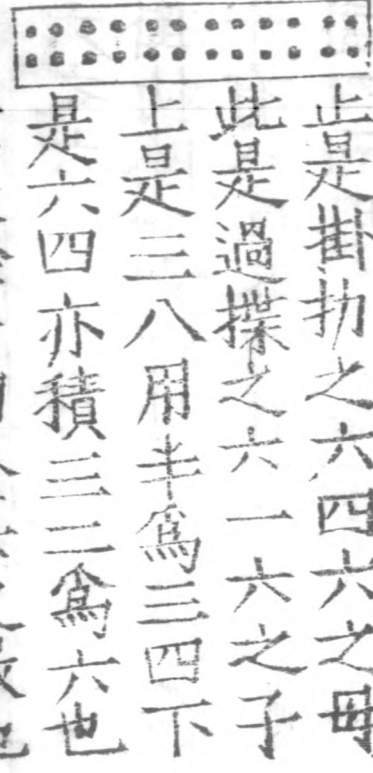 上是掛扐之六四六之母
此是過揲之六一六之子
上是三八用半爲三四下
是六四亦積三二爲六也